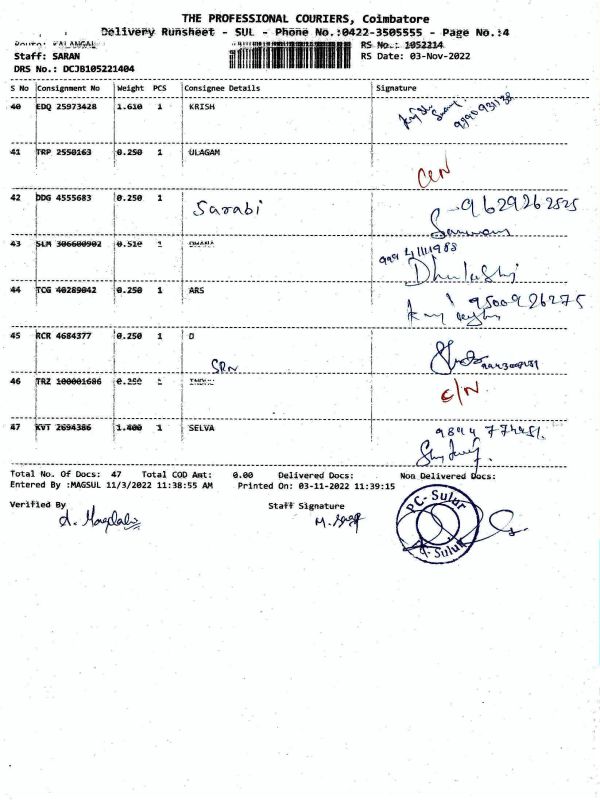 THE PROFESSIONAL COURIERS, Coimbatore
Delivery Runsheet - SUL - Phone No.:0422-3505555 - Page No.:4
Route: KALANGAL
RS No.: 1052214
Staff: SARAN
RS Date: 03-Nov-2022
DRS No.: DCJB105221404
S No Consignment No Weight PCS Consignee Details Signature
40 EDQ 25973428 1.610 1 KRISH
41 TRP 2550163 0.250 1 ULAGAM
C/N
42 DDG 4555683 0.250 1 Sarabi 9629262525
43 SLM 306600902 0.510 1
44 TCG 40289042 0.250 1 ARS 9500926275
45 RCR 4684377 0.250 1 D
SRN
46 TRZ 100001686 0.250 1
C/N
47 KVT 2694386 1.400 1 SELVA
Total No. Of Docs: 47 Total COD Amt: 0.00 Delivered Docs: Non Delivered Docs:
Entered By :MAGSUL 11/3/2022 11:38:55 AM Printed On: 03-11-2022 11:39:15
Verified By Staff Signature
PC-Sulur